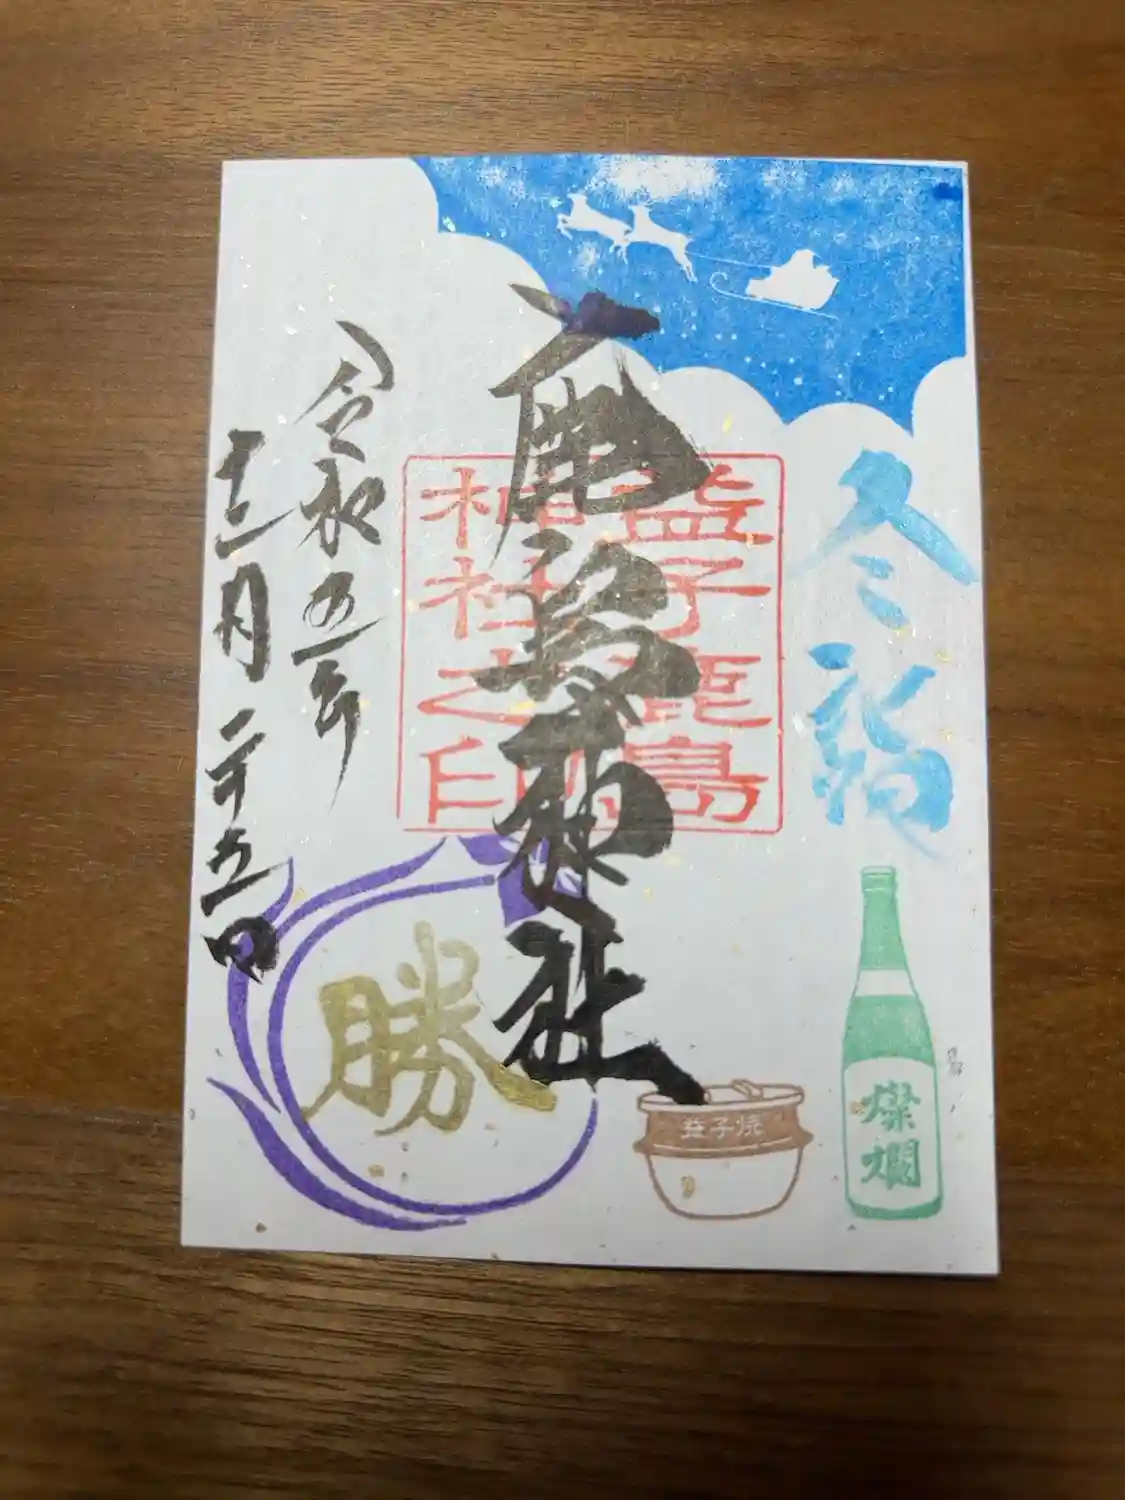 冬詣
燦爛
鹿島神社
益子鹿島
神社之印
益子焼
勝
令和五年
十二月二十五日